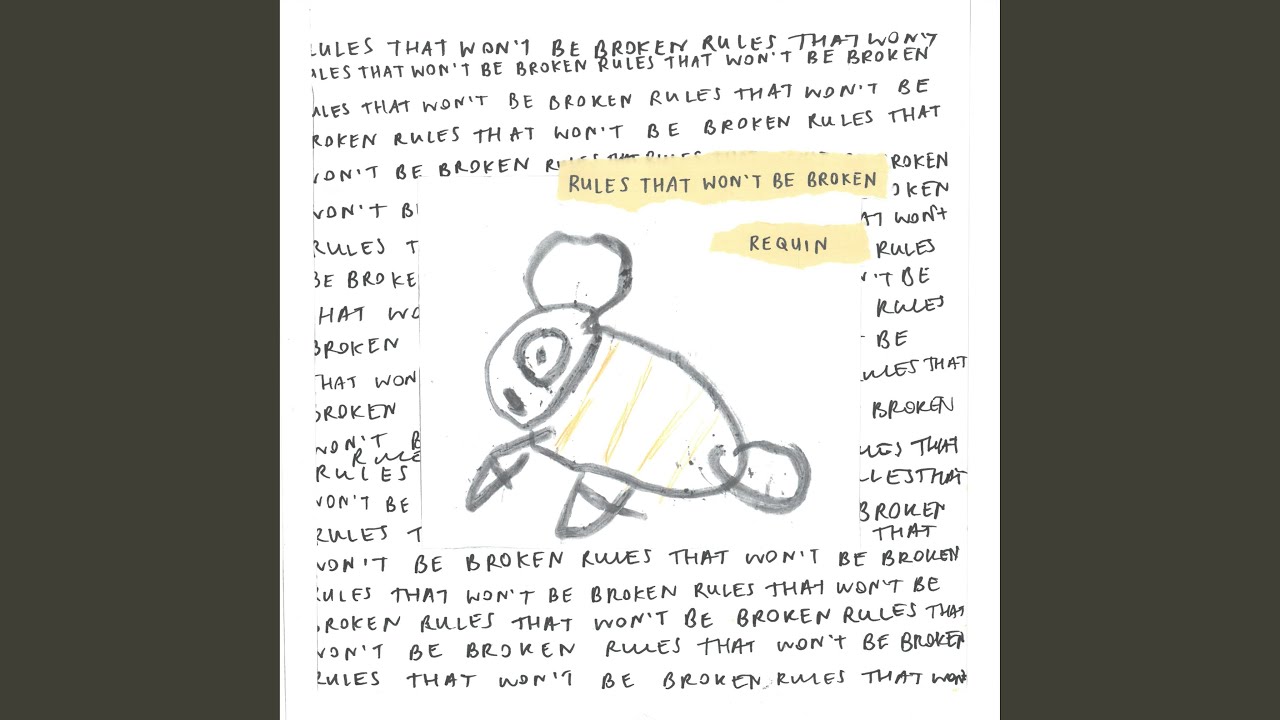 RULES THAT WON'T BE BROKEN RULES THAT WON'T
RULES THAT WON'T BE BROKEN RULES THAT WON'T BE BROKEN
RULES THAT WON'T BE BROKEN RULES THAT WON'T BE
BROKEN RULES THAT WON'T BE BROKEN RULES THAT
WON'T BE BROKEN ROKEN
RULES THAT WON'T BE BROKEN
WON'T B OKEN
AT WON'T
REQUIN
RULES T RULES
BE BROKE 'T BE
THAT WO RULES
BROKEN BE
THAT WON RULES THAT
BROKEN BROKEN
WON'T B RULES THAT
RULE
RULES LES THAT
WON'T BE BROKEN
RULES T THAT
WON'T BE BROKEN RULES THAT WON'T BE BROKEN
RULES THAT WON'T BE BROKEN RULES THAT WON'T BE
BROKEN RULES THAT WON'T BE BROKEN RULES THAT
WON'T BE BROKEN RULES THAT WON'T BE BROKEN
RULES THAT WON'T BE BROKEN RULES THAT WON'T